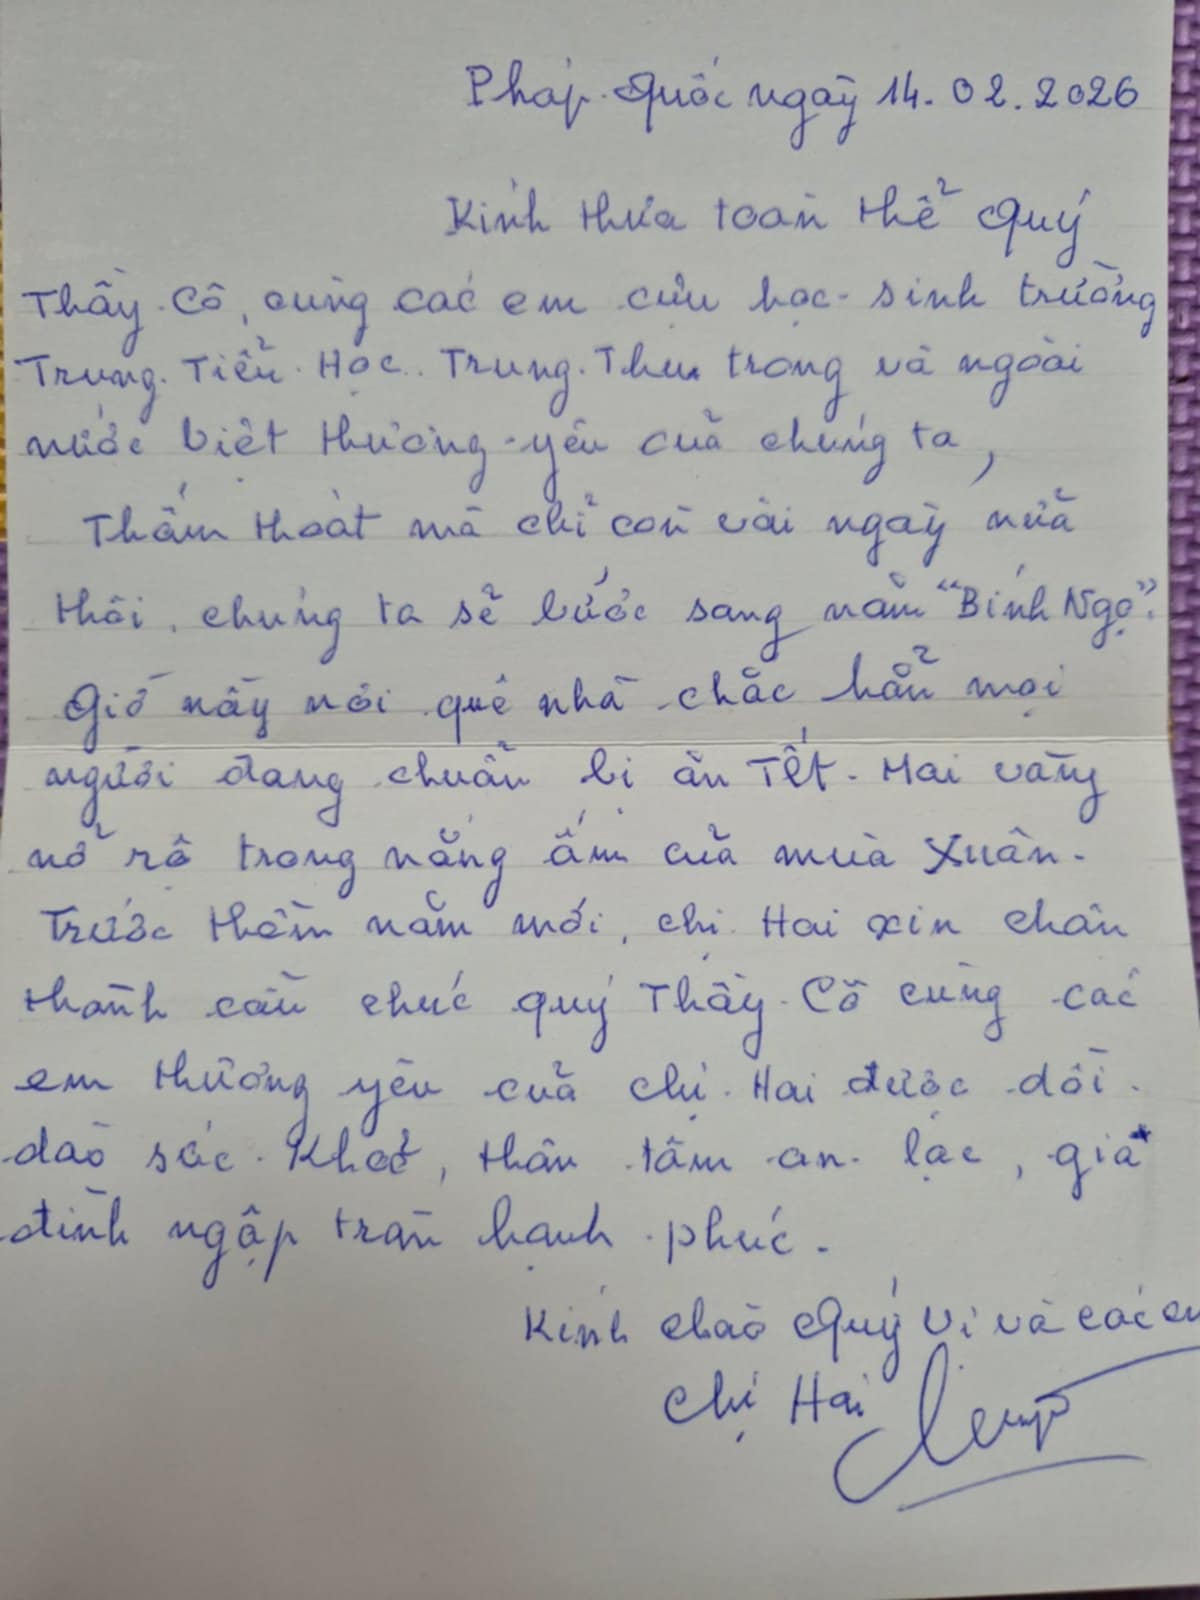 Pháp. Quốc ngày 14. 02. 2026
Kính thưa toàn thể Quý
Thầy. Cô, cùng các em cựu học- sinh trường
Trung. Tiểu. Học.. Trung. Thu trong và ngoài
nước biệt thương-yêu của chúng ta,
Thấm thoát mà chỉ còn vài ngày nữa
thôi, chúng ta sẽ bước sang năm "Bính Ngọ".
Giờ nầy nơi quê nhà chắc hẳn mọi
người đang chuẩn bị ăn Tết. Mai vàng
nở rộ trong nắng ấm của mùa Xuân.
Trước thềm năm mới, chị Hai xin chân
thành cầu chúc quý Thầy. Cô cùng các
em thương yêu của chị. Hai được dồi.
dào sức. Khoẻ, thân tâm an. lạc, gia
đình ngập tràn hạnh phúc.
Kính chào Quý Vị và các em
Chị Hai